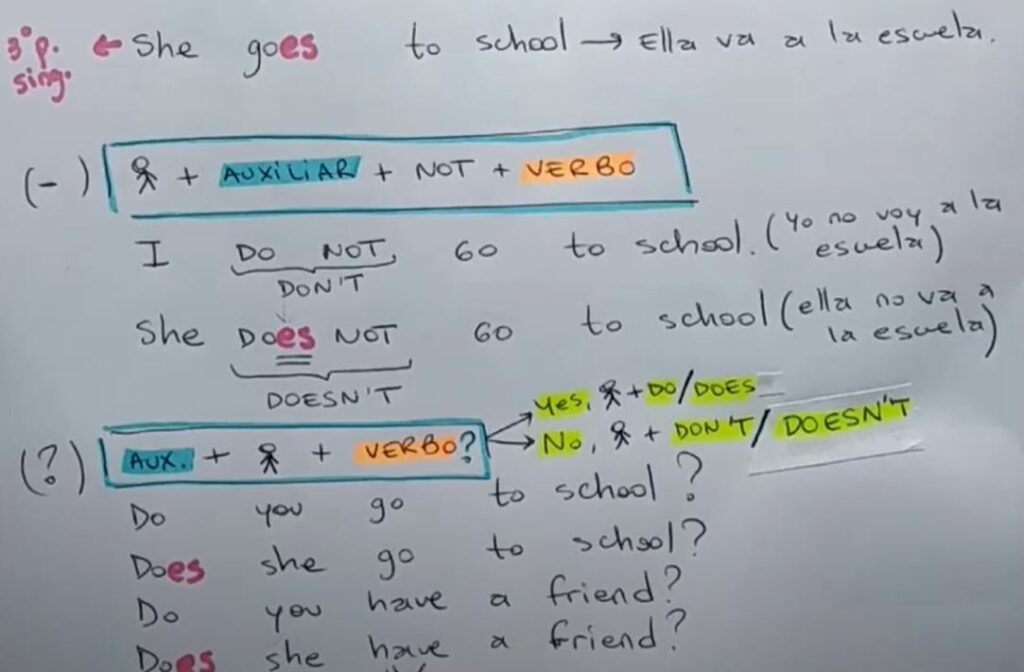 3ºp. sing. ← She goes to school → Ella va a la escuela.
(-) + AUXILIAR + NOT + VERBO
I DO NOT GO to school. (Yo no voy a la escuela)
DON'T
She DOes NOT GO to school (ella no va a la escuela)
DOESN'T
Yes, + DO/DOES
No, + DON'T/DOESN'T
(?) AUX. + + VERBO?
Do you go to school?
Does she go to school?
Do you have a friend?
Does she have a friend?